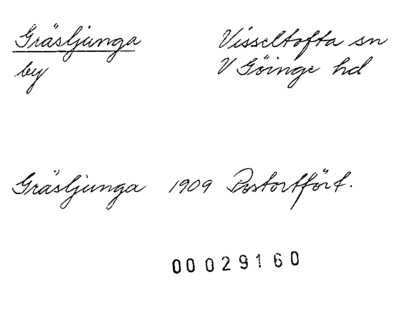 Gräsljunga Visseltofta sn
by V Göinge hd
Gräsljunga 1909 Postortfört.
00029160